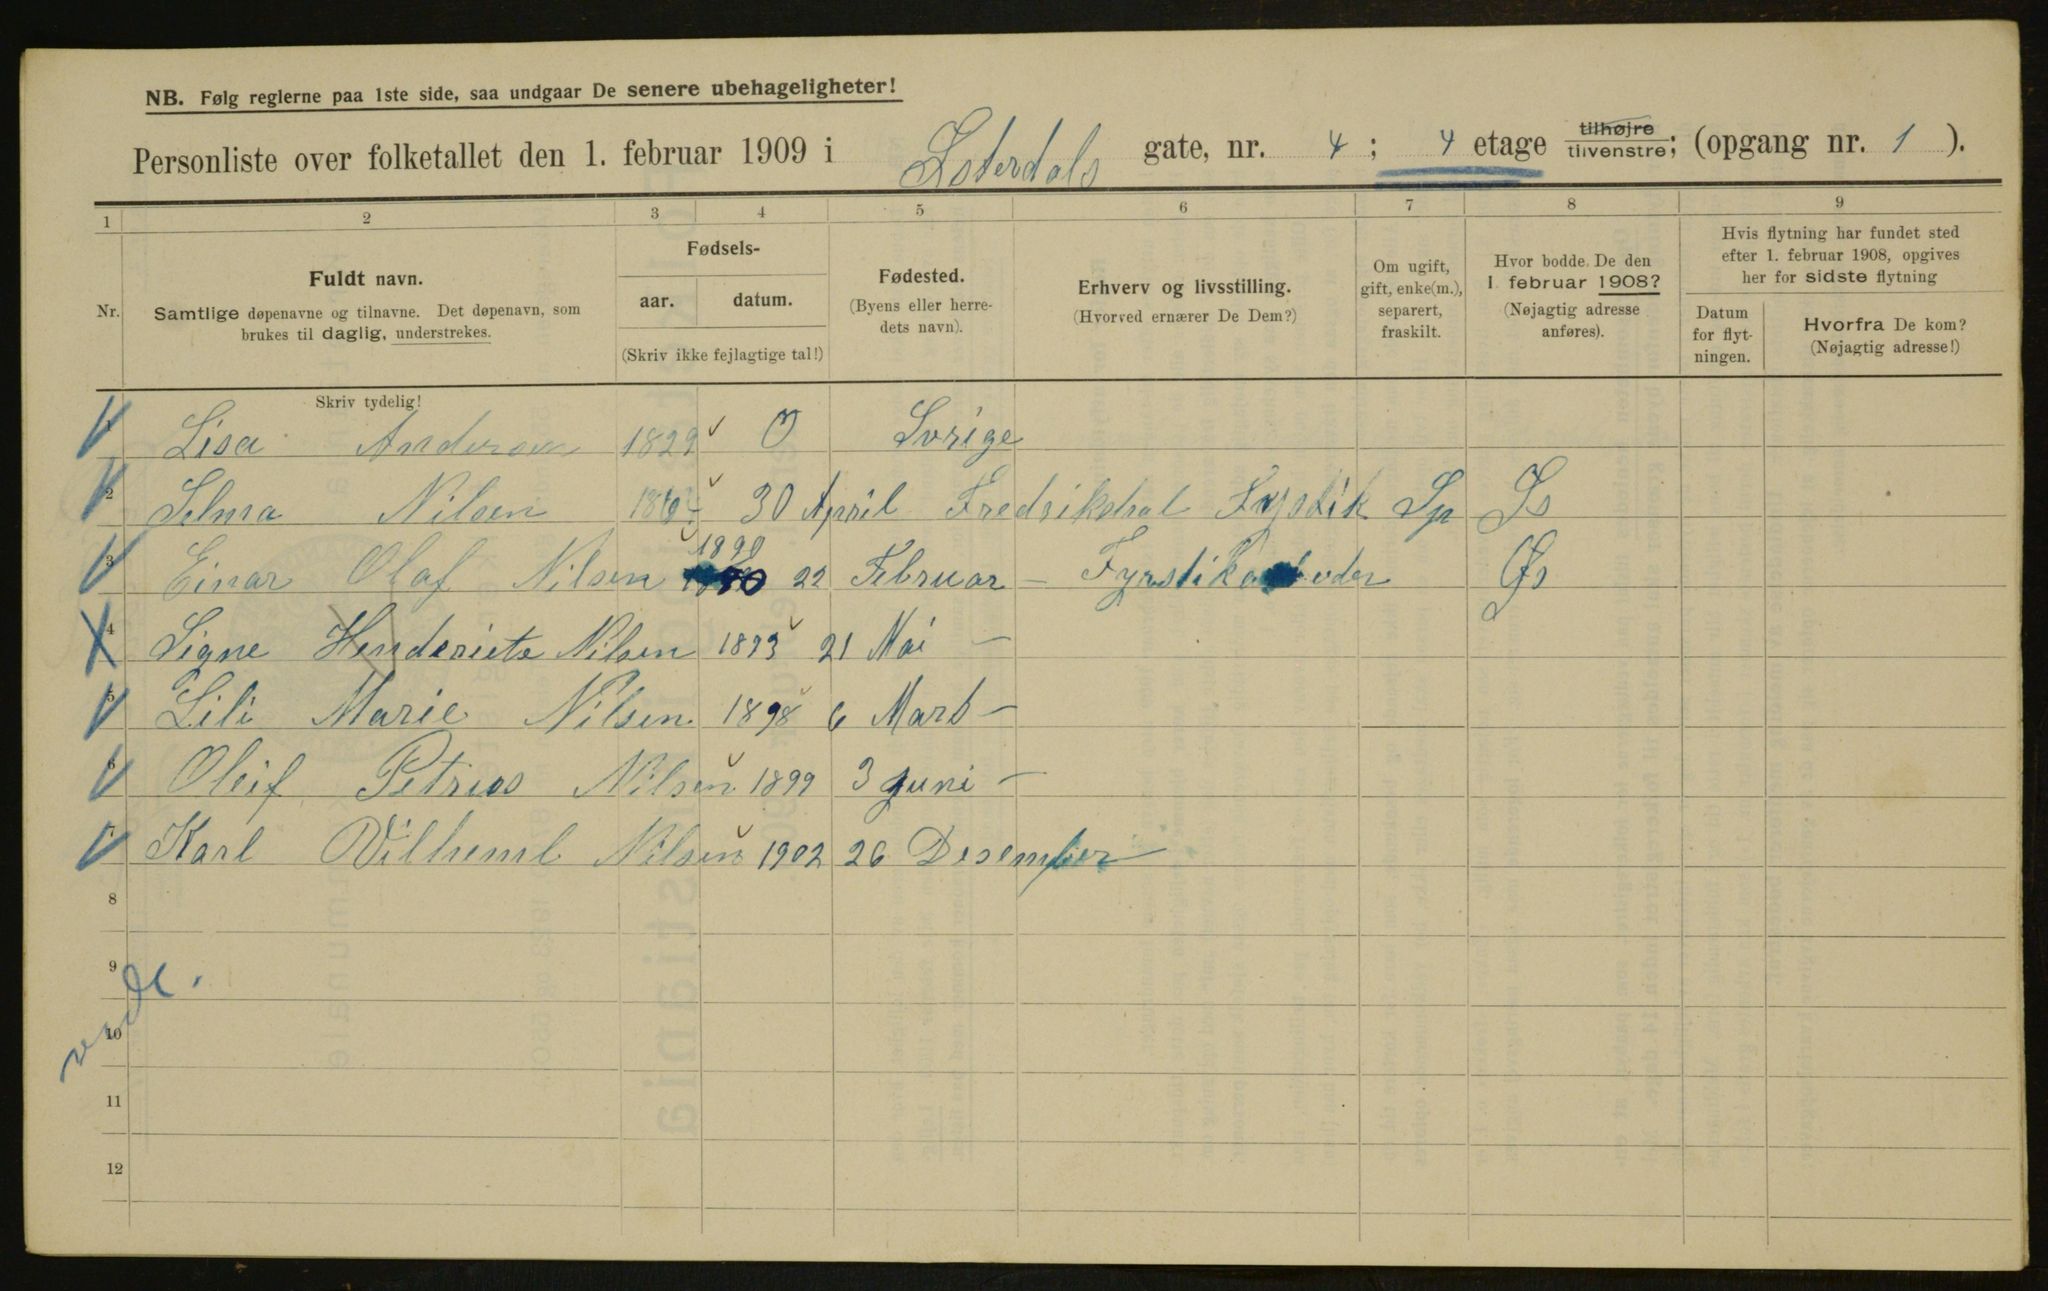 NB. Følg reglerne paa 1ste side, saa undgaar De senere ubehageligheter!
Personliste over folketallet den 1. februar 1909 i Østerdals gate, nr. 4; 4 etage tilhøjre tilvenstre; (opgang nr. 1).
1 2 3 4 5 6 7 8 9
Nr.
Fuldt navn.
Samtlige døpenavne og tilnavne. Det døpenavn, som
brukes til daglig, understrekes.
Fødsels-
aar. datum.
(Skriv ikke fejlagtige tal!)
Fødested.
(Byens eller herre-
dets navn).
Erhverv og livsstilling.
(Hvorved ernærer De Dem?)
Om ugift,
gift, enke(m.),
separert,
fraskilt.
Hvor bodde De den
1. februar 1908?
(Nøjagtig adresse
anføres).
Hvis flytning har fundet sted
efter 1. februar 1908, opgives
her for sidste flytning
Datum
for flyt-
ningen.
Hvorfra De kom?
(Nøjagtig adresse!)
Skriv tydelig!
1 Lisa Andersen 1829 0 Svrige
2 Selma Nilsen 30 April Fredrikshal Sp Øs
3 Einar Olaf Nilsen 1890 22 Februar — Øs
4 Signe Henderiete Nilsen 1893 21 Mai —
5 Lili Marie Nilsen 1898 6 Marts —
6 Oleif Petrus Nilsen 1899 3 Juni —
7 Karl Vilheml Nilsen 1902 26 Desember
8
9
10
vende.
11
12